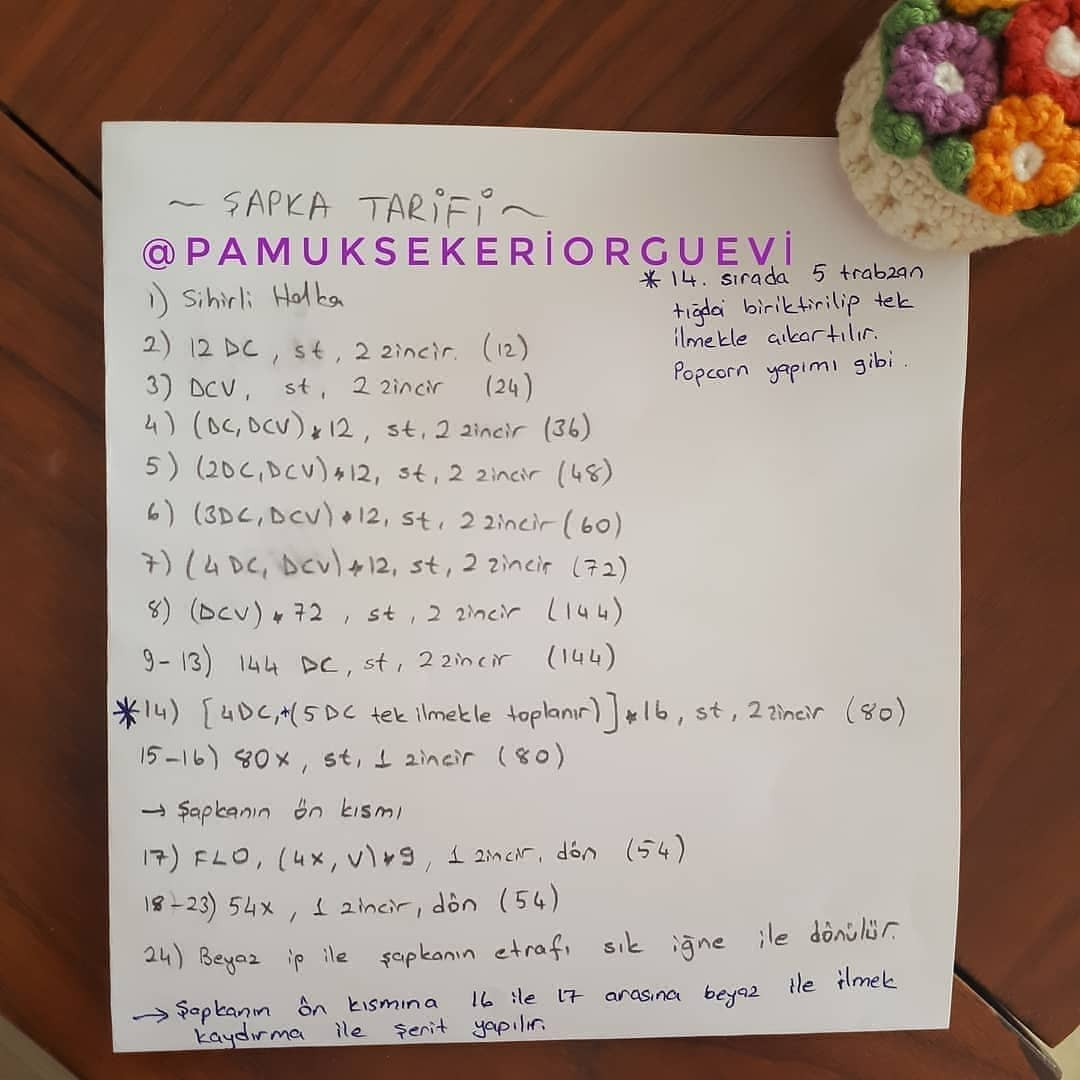 ~ ŞAPKA TARİFİ ~
@PAMUKSEKERİORGUEVİ
1) Sihirli Halka
2) 12 DC, st, 2 zincir. (12)
3) DCV, st, 2 zincir (24)
4) (DC, DCV)*12, st, 2 zincir (36)
5) (2DC, DCV)*12, st, 2 zincir (48)
6) (3DC, DCV)*12, st, 2 zincir (60)
7) (4DC, DCV)*12, st, 2 zincir (72)
8) (DCV)*72, st, 2 zincir (144)
9-13) 144 DC, st, 2 zincir (144)
*14) [4DC,+(5DC tek ilmekle toplanır)]*16, st, 2 zincir (80)
15-16) 80x, st, 1 zincir (80)
→ Şapkanın ön kısmı
17) FLO, (4x, V)*9, 1 zincir, dön (54)
18-23) 54x, 1 zincir, dön (54)
24) Beyaz ip ile şapkanın etrafı sık iğne ile dönülür.
→ Şapkanın ön kısmına 16 ile 17 arasına beyaz ile ilmek
kaydırma ile şerit yapılır.
* 14. sırada 5 trabzan
tığda biriktirilip tek
ilmekle çıkartılır.
Popcorn yapımı gibi.